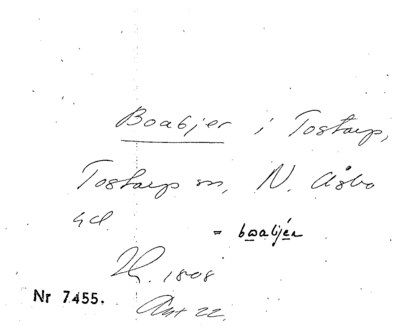 Boabjer i Tostarp,
Tostarp sn, N. Åsbo
hd
= boabjér
1808
Nr 7455.
Akt 22.